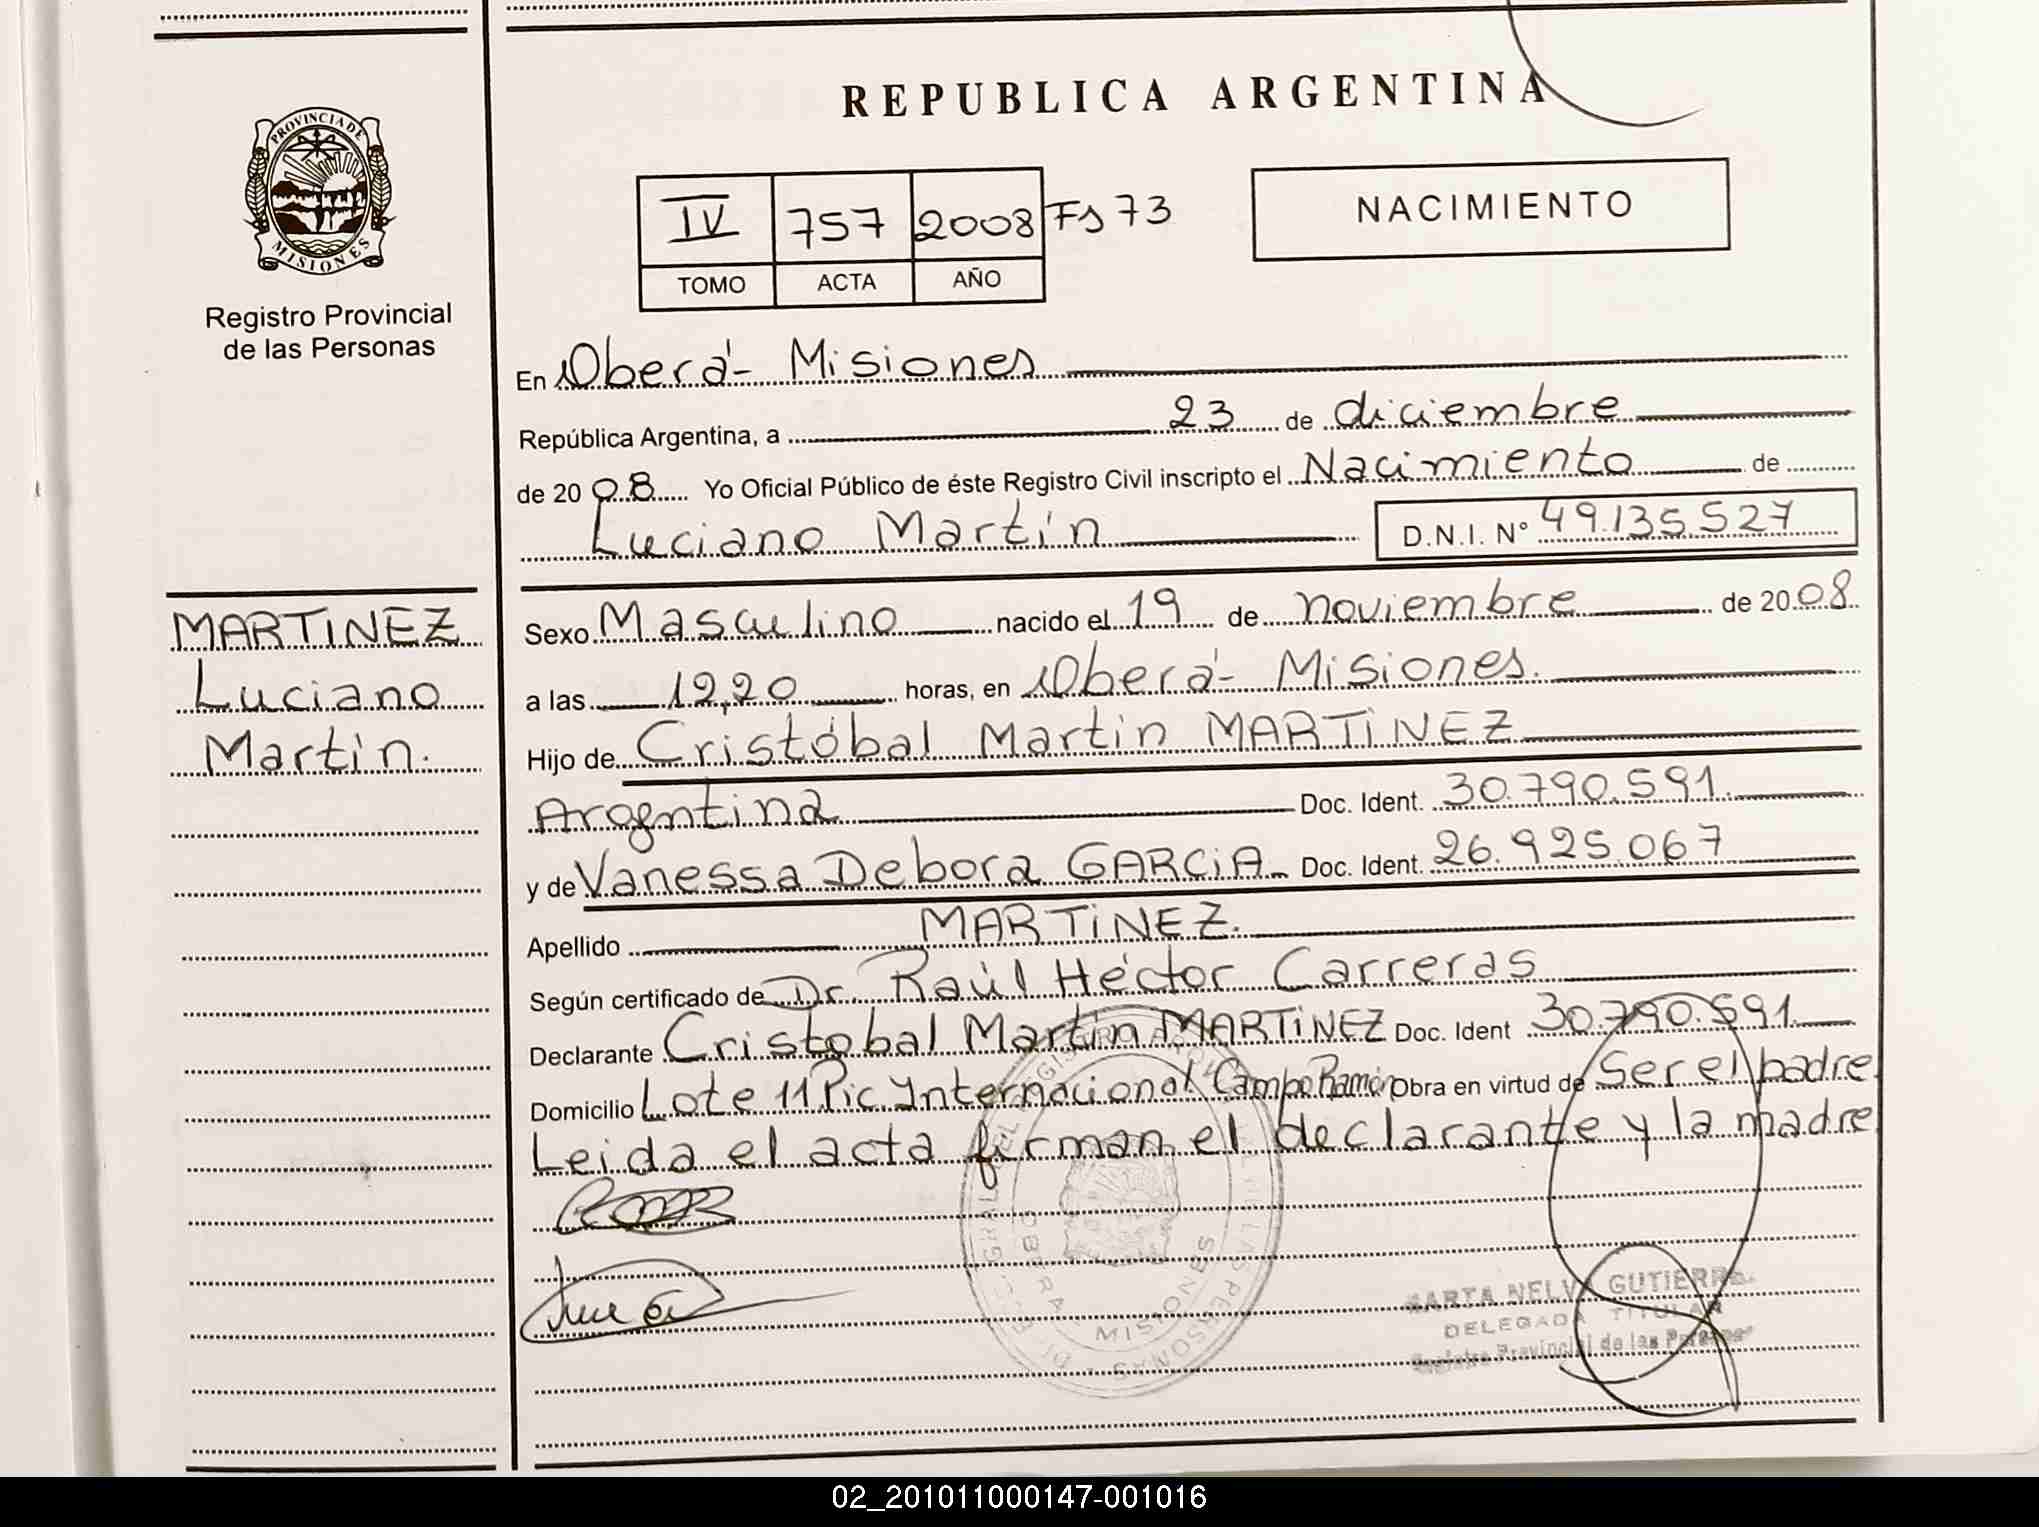 REPUBLICA ARGENTINA
PROVINCIA DE
MISIONES
Registro Provincial
de las Personas
IV 757 2008 Fs 73
TOMO ACTA AÑO
NACIMIENTO
En Oberá - Misiones
República Argentina, a 23 de diciembre
de 2008 Yo Oficial Público de éste Registro Civil inscripto el Nacimiento de
Luciano Martín D.N.I. Nº 49.135.527
MARTINEZ
Luciano
Martín.
Sexo Masculino nacido el 19 de noviembre de 2008
a las 12,20 horas, en Oberá - Misiones.
Hijo de Cristóbal Martin MARTiNEZ
Argentina Doc. Ident. 30.790.591.
y de Vanessa Debora GARCiA Doc. Ident. 26.925.067
Apellido MARTiNEZ.
Según certificado de Dr. Raúl Héctor Carreras
Declarante Cristobal Martin MARTiNEZ Doc. Ident 30.790.591.
Domicilio Lote 11 Pic Internacional Campo Ramón Obra en virtud de Ser el padre.
Leida el acta firman el declarante y la madre
OBERA
MISIONES
MARTA NELVA GUTIERRE
DELEGADA TITULAR
Registro Provincial de las Personas
02_201011000147-001016